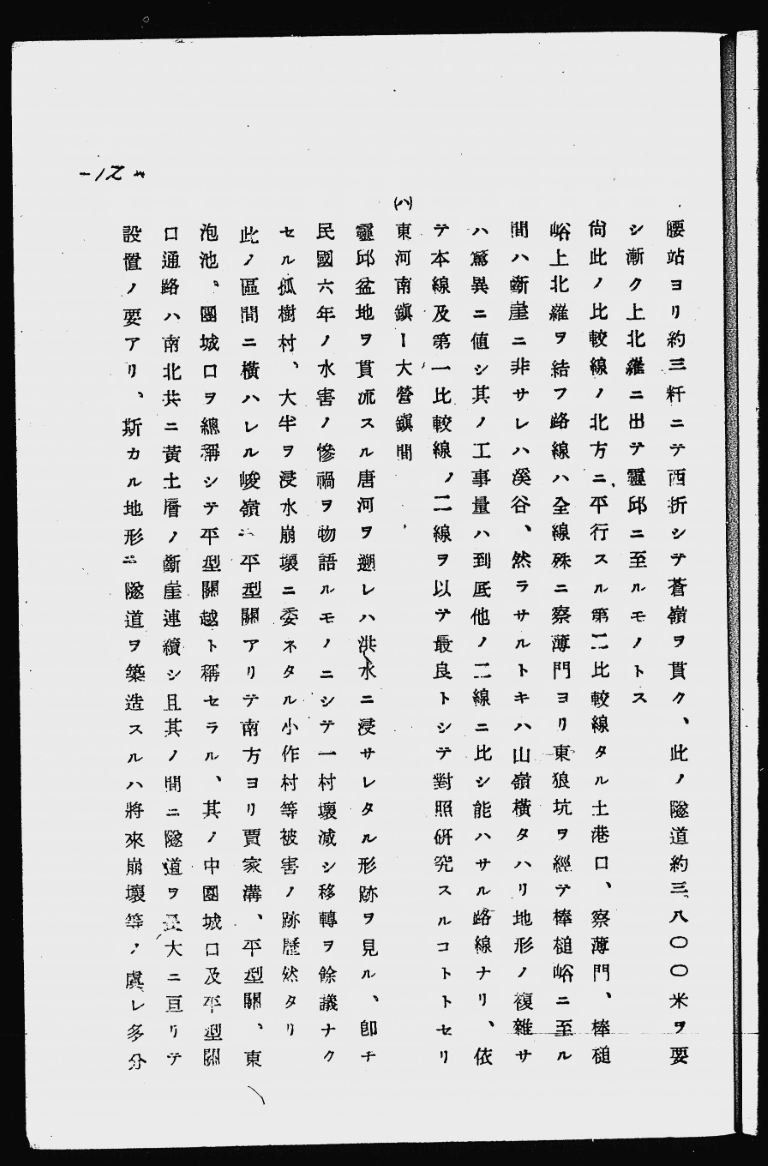 -12-
腰站ヨリ約三粁ニテ西折シテ蒼嶺ヲ貫ク、此ノ隧道約三、八〇〇米ヲ要
シ漸ク上北羅ニ出テ靈邱ニ至ルモノトス
尙此ノ比較線ノ北方ニ平行スル第二比較線タル土港口、察薄門、棒槌
峪上北羅ヲ結フ路線ハ全線殊ニ察薄門ヨリ東狼坑ヲ經テ棒槌峪ニ至ル
間ハ斷崖ニ非サレハ溪谷、然ラサルトキハ山嶺橫タハリ地形ノ複雜サ
ハ驚異ニ値シ其ノ工事量ハ到底他ノ二線ニ比シ能ハサル路線ナリ、依
テ本線及第一比較線ノ二線ヲ以テ最良トシテ對照硏究スルコトトセリ
(ハ)東河南鎭ー大營鎭間
靈邱盆地ヲ貫流スル唐河ヲ遡レハ洪水ニ浸サレタル形跡ヲ見ル、卽チ
民國六年ノ水害ノ慘禍ヲ物語ルモノニシテ一村壞滅シ移轉ヲ餘議ナク
セル孤樹村、大半ヲ浸水崩壞ニ委ネタル小作村等被害ノ跡歷然タリ
此ノ區間ニ橫ハレル峻嶺ニ平型關アリテ南方ヨリ賈家溝、平型關、東
泡池、團城口ヲ總稱シテ平型關越ト稱セラル、其ノ中團城口及平型關
口通路ハ南北共ニ黃土層ノ斷崖連續シ且其ノ間ニ隧道ヲ長大ニ亘リテ
設置ノ要アリ、斯カル地形ニ隧道ヲ築造スルハ將來崩壞等ノ虞レ多分